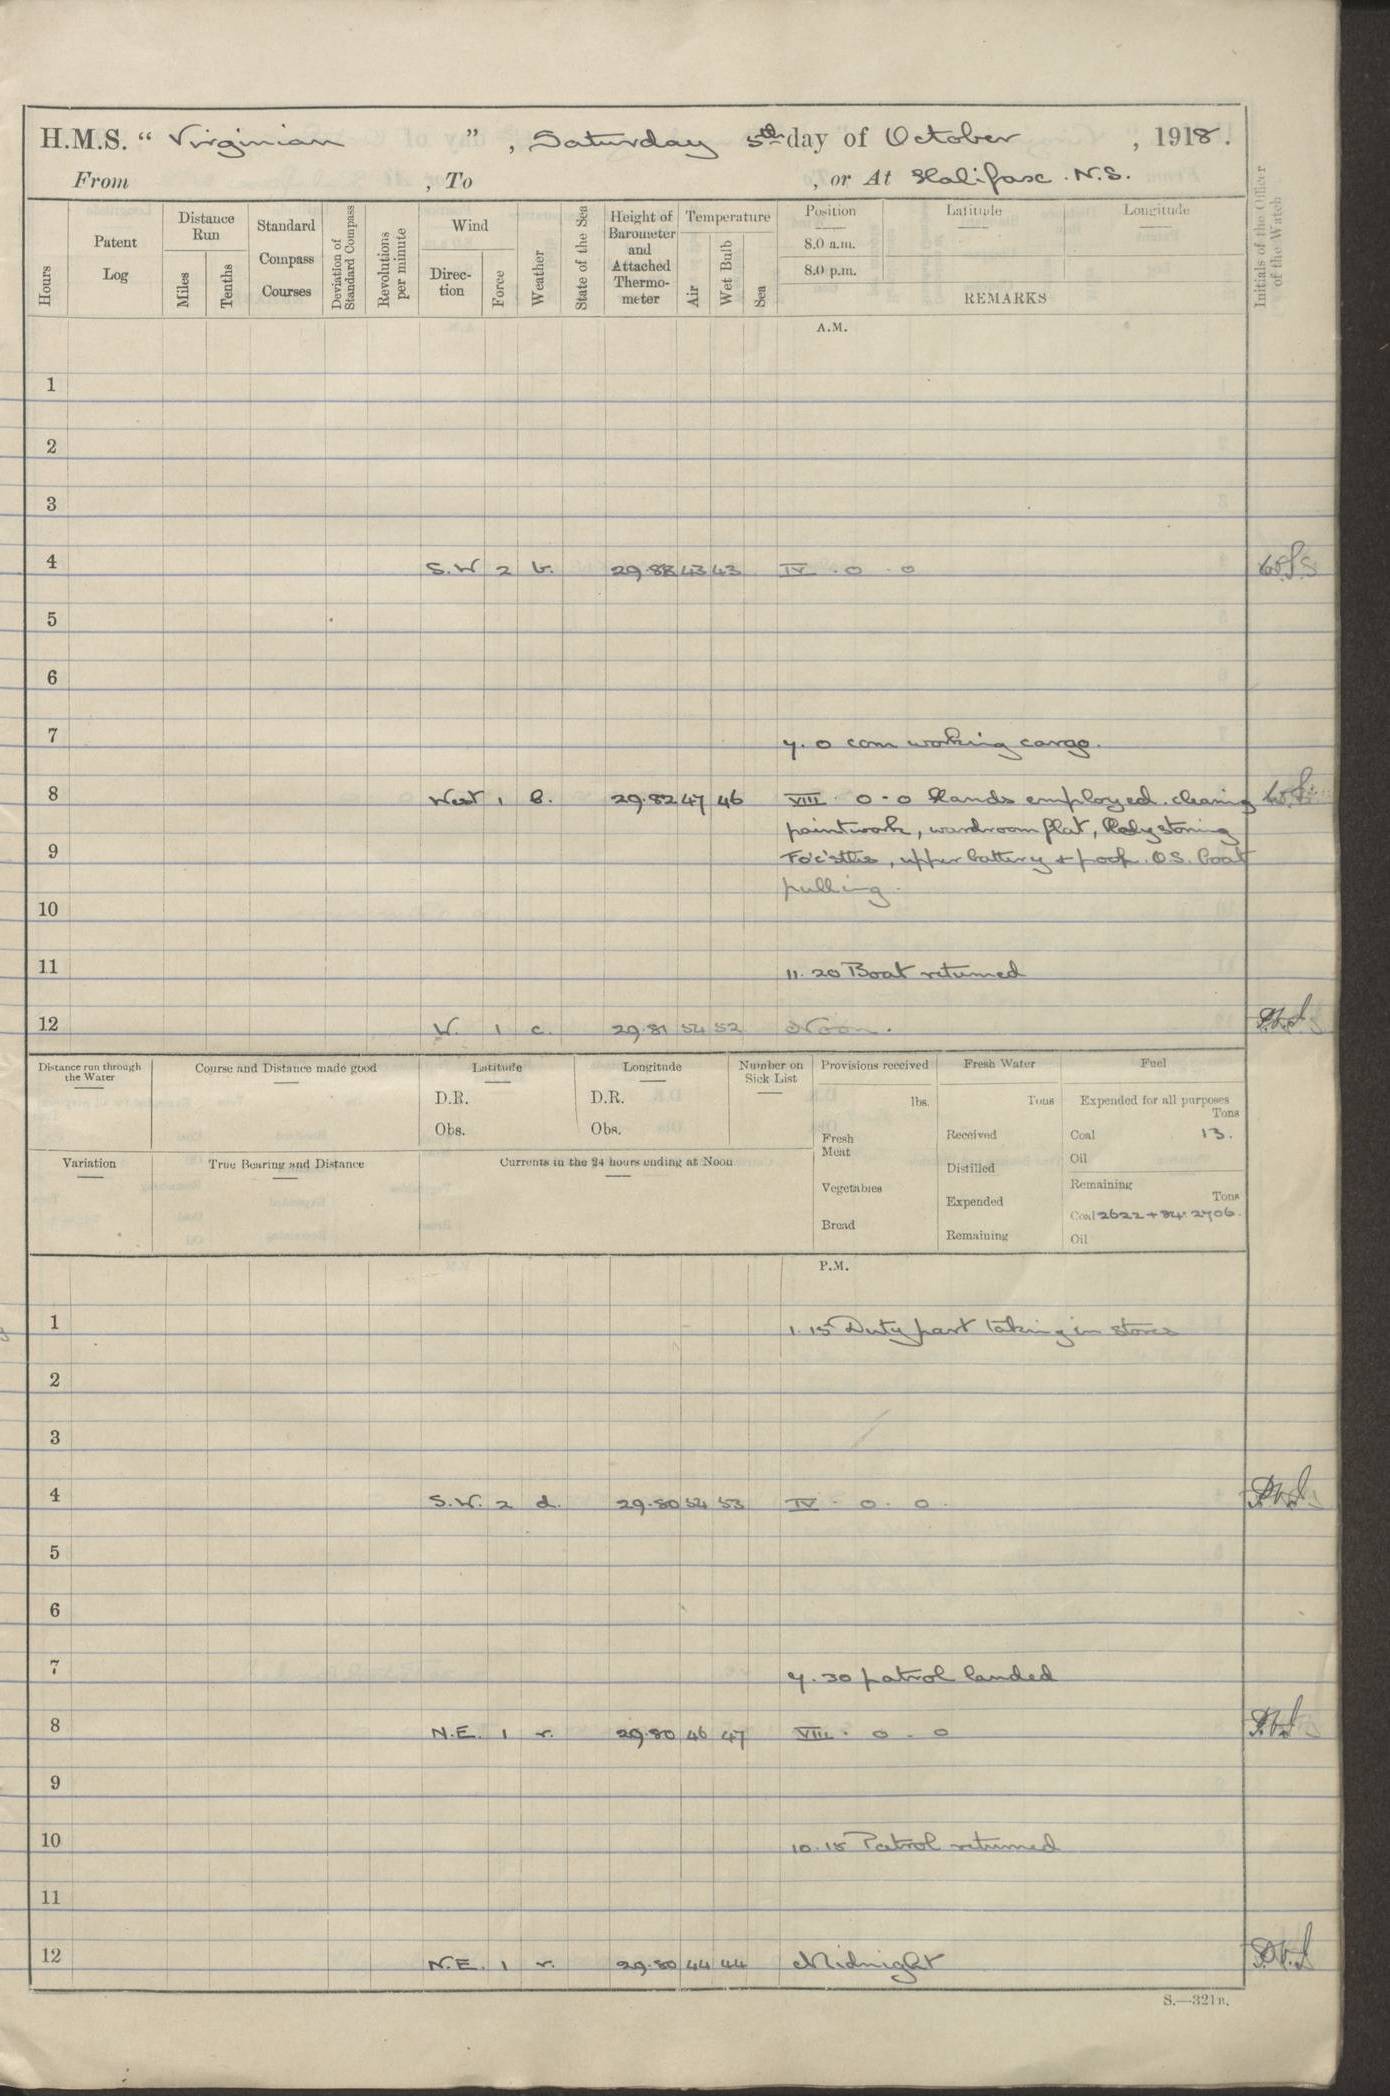 H.M.S. “ Virginian ” , Saturday 5th day of October , 1918.
From , To , or At Halifax . N.S.
Hours
Patent Log
Distance Run
Miles
Tenths
Standard Compass Courses
Deviation of Standard Compass
Revolutions per minute
Wind
Direc-tion
Force
Weather
State of the Sea
Height of Barometer and Attached Thermo-meter
Temperature
Air
Wet Bulb
Sea
Position
8.0 a.m.
8.0 p.m.
Latitude
Longitude
REMARKS
Initials of the Officer of the Watch
A.M.
1
2
3
4 S.W 2 b. 29.88 43 43 IV . 0 . 0
5
6
7 7. 0 com working cargo.
8 West 1 B. 29.82 47 46 VIII . 0 - 0 Hands employed. cleaning
paintwork, wardroom flat, Holystoning
9 Fo'c'stles, upper battery & poop. O.S. boat
pulling.
10
11 11. 20 Boat returned
12 W. 1 c. 29.81 54 52 Noon.
Distance run through the Water
Course and Distance made good
Latitude
D.R.
Obs.
Longitude
D.R.
Obs.
Number on Sick List
Provisions received
lbs.
Fresh Meat
Vegetables
Bread
Fresh Water
Tons
Received
Distilled
Expended
Remaining
Fuel
Expended for all purposes
Tons
Coal 13.
Oil
Remaining
Tons
Coal 2622 + 84. 2706.
Oil
Variation
True Bearing and Distance
Currents in the 24 hours ending at Noon
P.M.
1 1. 15 Duty part taking in stores
2
3
4 S.W. 2 d. 29.80 54 53 IV . 0 . 0.
5
6
7 7. 30 patrol landed
8 N.E. 1 r. 29.80 46 47 VIII . 0 . 0
9
10 10. 15 Patrol returned
11
12 N.E. 1 r. 29.80 44 44 Midnight
S.—321B.